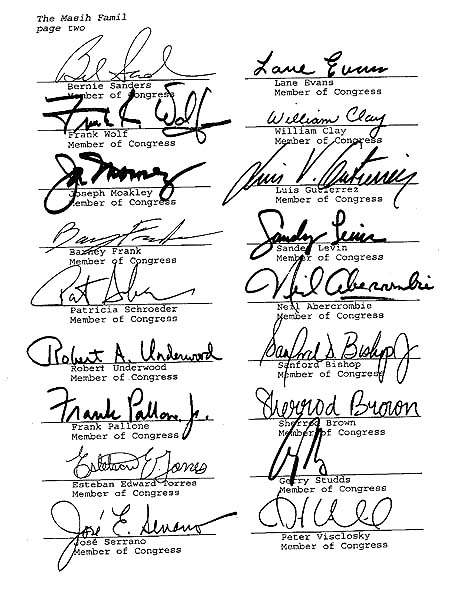 The Masih Famil
page two
Bernie Sanders
Member of Congress
Frank R. Wolf
Frank Wolf
Member of Congress
Joe Moakley
Joseph Moakley
Member of Congress
Barney Frank
Barney Frank
Member of Congress
Pat Schroeder
Patricia Schroeder
Member of Congress
Robert A. Underwood
Robert Underwood
Member of Congress
Frank Pallone, Jr.
Frank Pallone
Member of Congress
Esteban E. Torres
Esteban Edward Torres
Member of Congress
José E. Serrano
José Serrano
Member of Congress
Lane Evans
Lane Evans
Member of Congress
William Clay
William Clay
Member of Congress
Luis V. Gutierrez
Luis Gutierrez
Member of Congress
Sandy Levin
Sander Levin
Member of Congress
Neil Abercrombie
Neil Abercrombie
Member of Congress
Sanford D. Bishop Jr
Sanford Bishop
Member of Congress
Sherrod Brown
Sherrod Brown
Member of Congress
Gerry Studds
Member of Congress
Peter Visclosky
Member of Congress